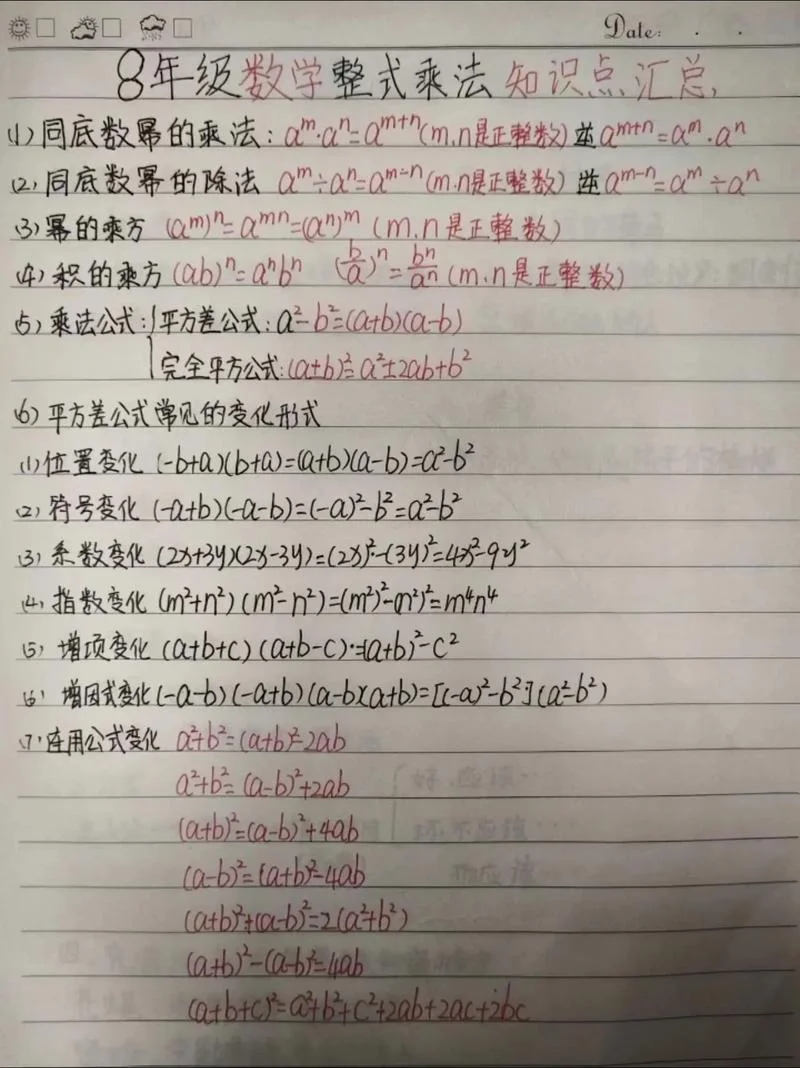 Date: . .
8年级数学整式乘法知识点汇总,
(1)同底数幂的乘法: aᵐ·aⁿ=aᵐ⁺ⁿ(m.n是正整数)逆aᵐ⁺ⁿ=aᵐ·aⁿ
(2)同底数幂的除法 aᵐ÷aⁿ=aᵐ⁻ⁿ(m.n是正整数)逆aᵐ⁻ⁿ=aᵐ÷aⁿ
(3)幂的乘方 (aᵐ)ⁿ=aᵐⁿ=(aⁿ)ᵐ (m.n是正整数)
(4)积的乘方(ab)ⁿ=aⁿbⁿ (b/a)ⁿ=bⁿ/aⁿ(m.n是正整数)
(5)乘法公式:{平方差公式:a²-b²=(a+b)(a-b)
完全平方公式:(a±b)²=a²±2ab+b²
(6)平方差公式常见的变化形式
(1)位置变化(-b+a)(b+a)=(a+b)(a-b)=a²-b²
(2)符号变化(-a+b)(-a-b)=(-a)²-b²=a²-b²
(3)系数变化(2x+3y)(2x-3y)=(2x)²-(3y)²=4x²-9y²
(4)指数变化(m²+n²)(m²-n²)=(m²)²-(n²)²=m⁴n⁴
(5)增项变化(a+b+c)(a+b-c)·=(a+b)²-c²
(6)增因式变化(-a-b)(-a+b)(a-b)(a+b)=[(-a)²-b²](a²-b²)
(7)连用公式变化 a²+b²=(a+b)²-2ab
a²+b²=(a-b)²+2ab
(a+b)²=(a-b)²+4ab
(a-b)²=(a+b)²-4ab
(a+b)²+(a-b)²=2(a²+b²)
(a+b)²-(a-b)²=4ab
(a+b+c)²=a²+b²+c²+2ab+2ac+2bc